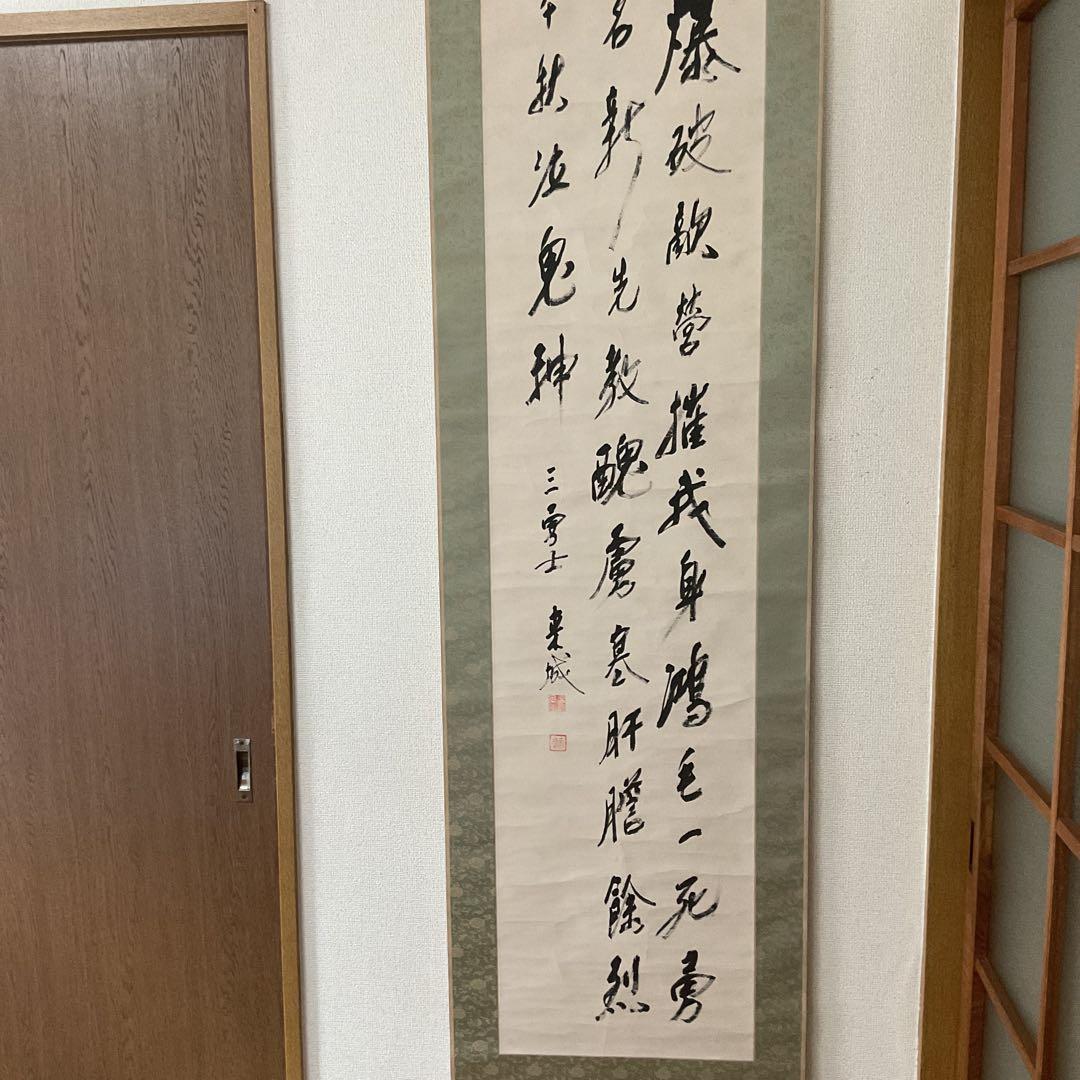 爆破敵營摧我身鴻毛一死勇
名新先教醜虜寒肝膽餘烈
千秋泣鬼神 三勇士 来城